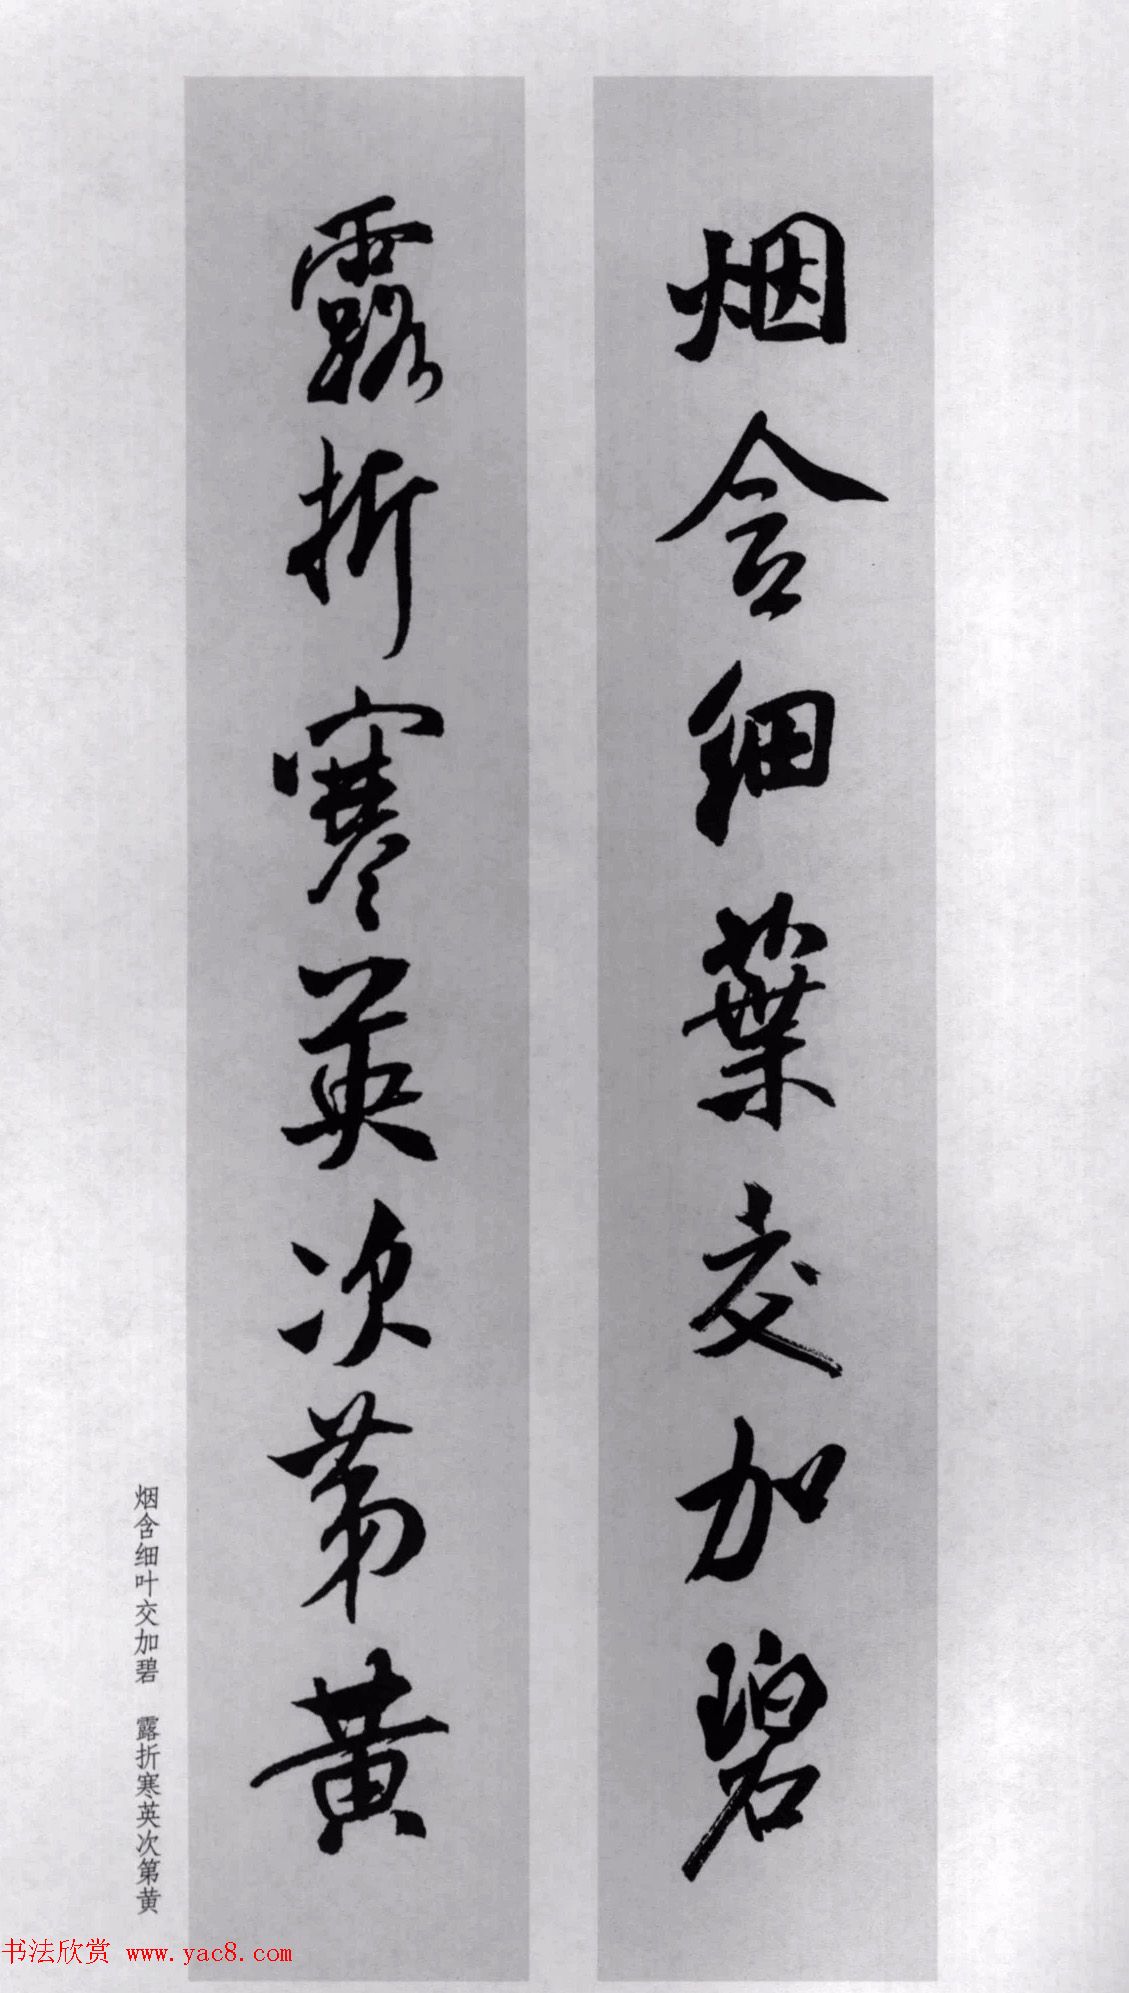 烟含细葉交加碧
露折寒英次第黄
烟含细叶交加碧 露折寒英次第黄
书法欣赏 www.yac8.com